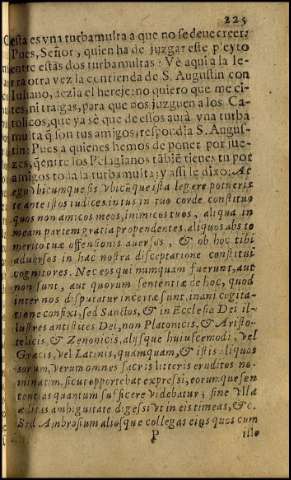 225
Cesta es vna turbamulta a que no se deue creer:
Pues, Señor, quien ha de juzgar este pleyto
entre estas dos turbamultas? Ve aqui a la le-
tra otra vez la contienda de S. Augustin con
Iuliano, dezia el hereje: no quiero que me ci-
tes, ni traigas, para que nos juzguen a los Ca-
tolicos, que ya sè que de essos aurà vna turba
multa q̃ son tus amigos, respondia S. Augus-
tin: Pues a quienes hemos de poner por jue-
zes, q̃ entre los Pelagianos tãbiẽ tienes tu por
amigos toda la turbamulta; y assi le dixo: At
ego vbicumque sis vbicũque ista legere potueris
te ante istos iudices intus in tuo corde constituo
quos non amicos meos, inimicos tuos, aliqua in
meam partem gratia propendentes, aliquos abs te
merito tuæ offensionis auersos, & ob hoc tibi
aduersos in hac nostra disceptatione constitui
cognitores. Nec eos qui numquam fuerunt, aut
non sunt, aut quorum sententia de hoc, quod
inter nos disputatur incerta sunt, inani cogita-
tione confixi, sed Sanctos, & in Ecclesia Dei il-
lustres antistites Dei, non Platonicis, & Aristo-
telicis, & Zenonicis, alijsque huiuscemodi, vel
Græcis, vel Latinis, quamquam, & istis aliquos
sorum, verum omnes sacris litteris eruditos no-
minatim, sicut oportebat expressi, eorumque sen
tentias quantum sufficere videbatur; sine vlla
æditas ambiguitate digessi vt in eis timeas, &c.
Sed Ambrosium aliosque collegas eius quos cum
P
illo